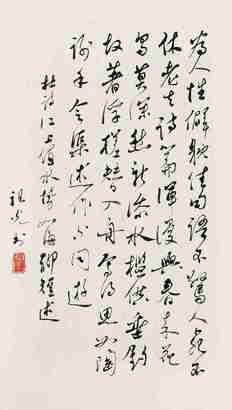 为人性僻耽佳句语不惊人死不
休老去诗篇浑漫与春来花
鸟莫深愁新添水槛供垂钓
故著浮槎替入舟焉得思如陶
谢手令渠述作与同游
杜诗江上值水如海势聊短述